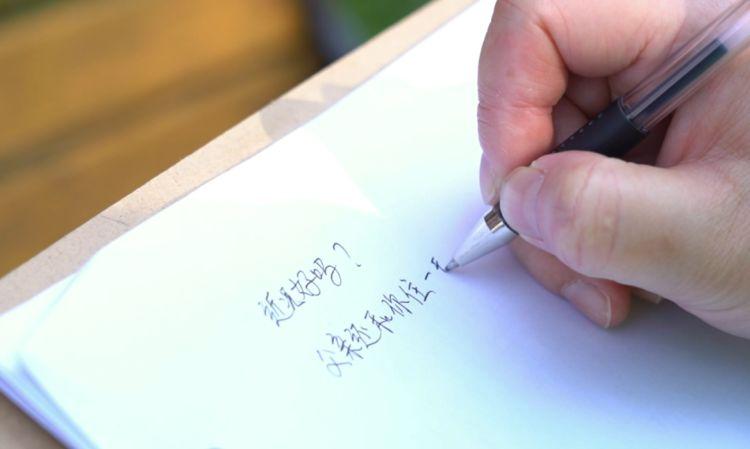 近况好吗?
父亲还和你住一